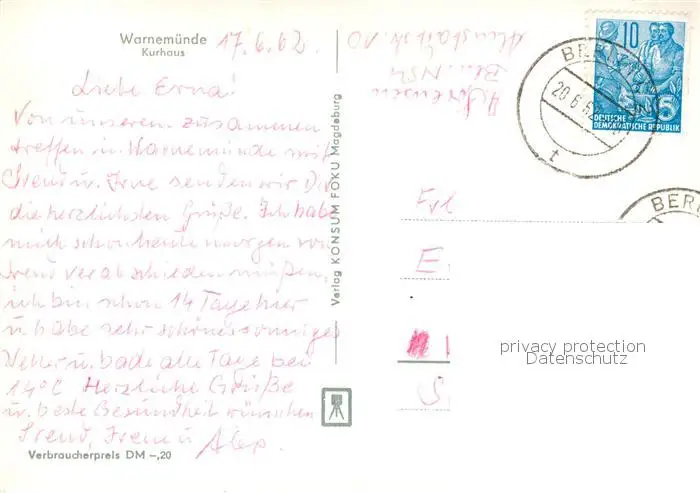 Warnemünde
Kurhaus
17.6.62.
Liebe Erna!
Von unseren zusamenen
treffen in Warnemünde mit
u. senden wir Dir
die herzlichsten Grüße. Ich habe
mich schon heute morgen von
verabschieden müßen,
ich bin schon 14 Tage hier
u habe sehr schönes sonniges
Wetter u. bade alle Tage bei
14°C Herzliche Grüße
u. beste Gesundheit wünschen
u Alex.
Verbraucherpreis DM -,20
Verlag KONSUM FOKU Magdeburg
10
DEUTSCHE
DEMOKRATISCHE REPUBLIK
BERLIN
20.6.62
t
BERL
Frl
E
S
privacy protection
Datenschutz